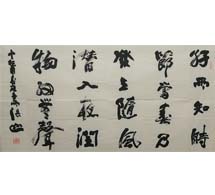 好雨知時
節當春乃
發生隨風
潛入夜潤
物細無聲